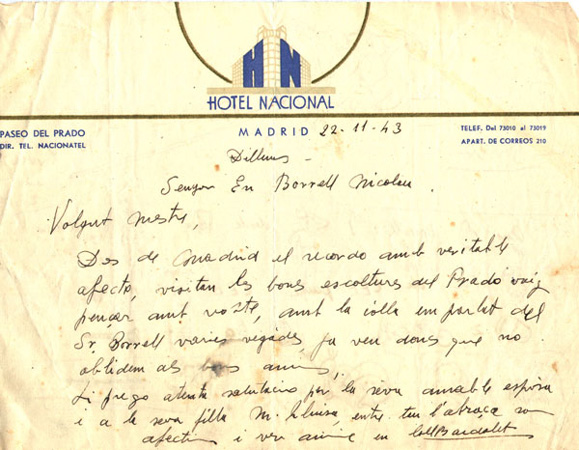 H N
HOTEL NACIONAL
PASEO DEL PRADO
DIR. TEL. NACIONATEL
MADRID 22-11-43
TELEF. Del 73010 al 73019
APART. DE CORREOS 210
Dilluns -
Senyor En Borrell Nicolau.
Volgut mestre,
Des de Madrid el recordo amb veritable
afecte, visitan les bones escoltures del Prado vaig
pençar amb vostè, amb la colla em parlat del
Sr. Borrell varies vegades, ja veu dons que no
oblidem als bons amics,
Li prego atenta salutacio per la seva amable esposa
i a la seva filla M. Lluisa, entre tan l'abraça son
afectim i ver amic en Coll Bardolet